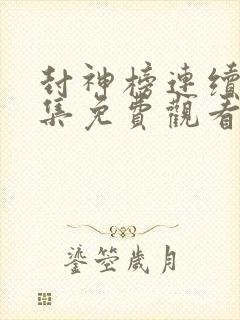 封神榜連續
集免費觀看
鎏箜歲月